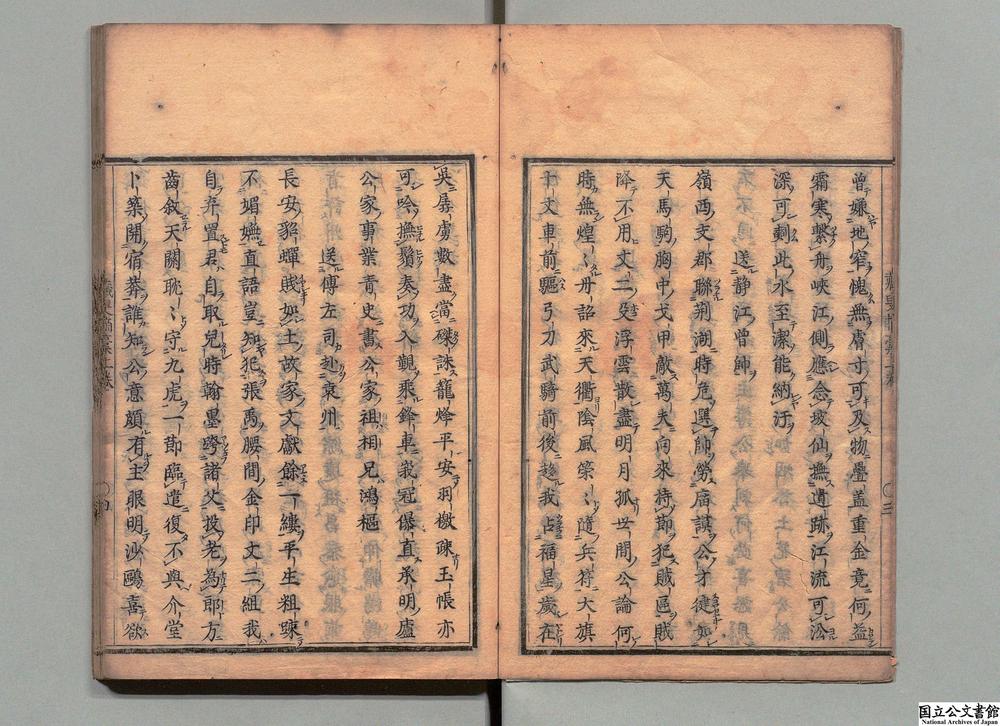 曾嫌地窄愧無膚寸可及物疊蓋重金竟何益
霜寒繫舟峽江側應念坡仙撫遺跡江流可泓
深可剰此水至潔能納汙
送静江曾帥
嶺西支郡聯荆湖時危選帥勞廟謨公才健如
天馬駒胸中戈甲敵萬夫向來持節犯賊區賊
降不用丈二殳浮雲散盡明月孤世間公論何
時無煌〻丹詔來天衢陰風策〻隨兵符大旗
十丈車前驅弓刀武騎前後趨我占福星歲在
吳孱虜數盡當磔誅龍烽平安羽檄疎玉帳亦
可吟撫鬚奏功入覲乘鋒車峩冠瀑直承明廬
公家事業青史書公家祖相兄鴻樞
送傅左司赴袁州
長安貂蟬賤如土故家文獻餘一縷平生粗踈
不媚嫵直語豈知犯張禹腰間金印丈二組我
自弃置君自取兒時翰墨跨諸父投老為耶方
齒叙天關眈〻守九虎一節臨遣復不與介堂
卜築開宿莽誰知公意頗有主眼明沙鷗喜欲
〇三
〇四
国立公文書館
National Archives of Japan